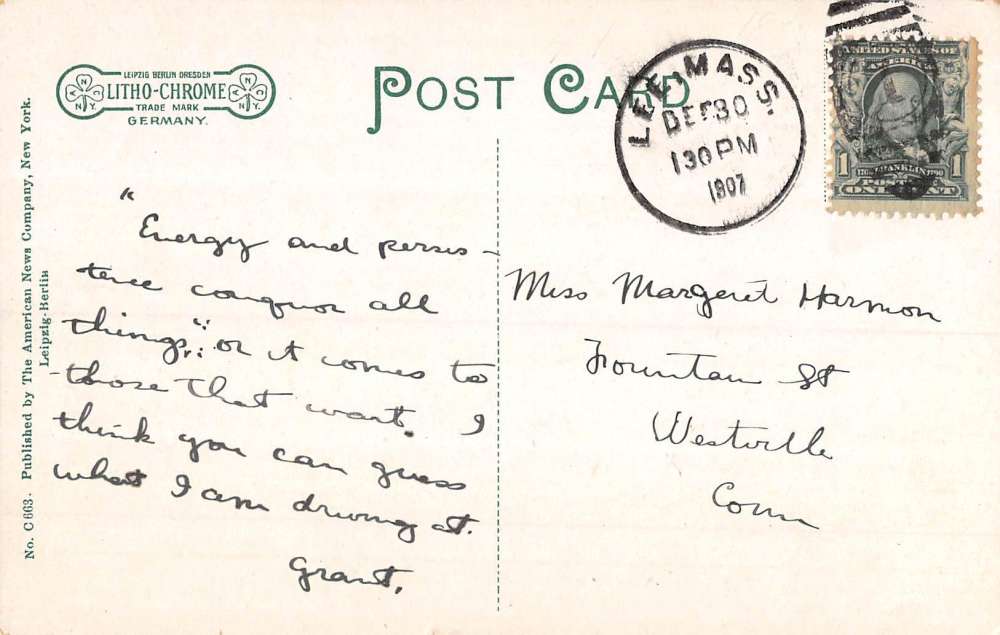 LEIPZIG BERLIN DRESDEN
LITHO-CHROME
TRADE MARK
GERMANY.
POST CARD
LEE, MASS.
DEC 30
130 PM
1907
UNITED STATES OF
AMERICA
1
1
FRANKLIN
ONE CENT
No. C663. Published by The American News Company, New York.
Leipzig-Berlin
"Energy and persis-
tence conquor all
things," or it comes to
those that want. I
think you can guess
what I am driving at.
Grant.
Miss Margeret Harmon
Fountain St
Westville
Conn